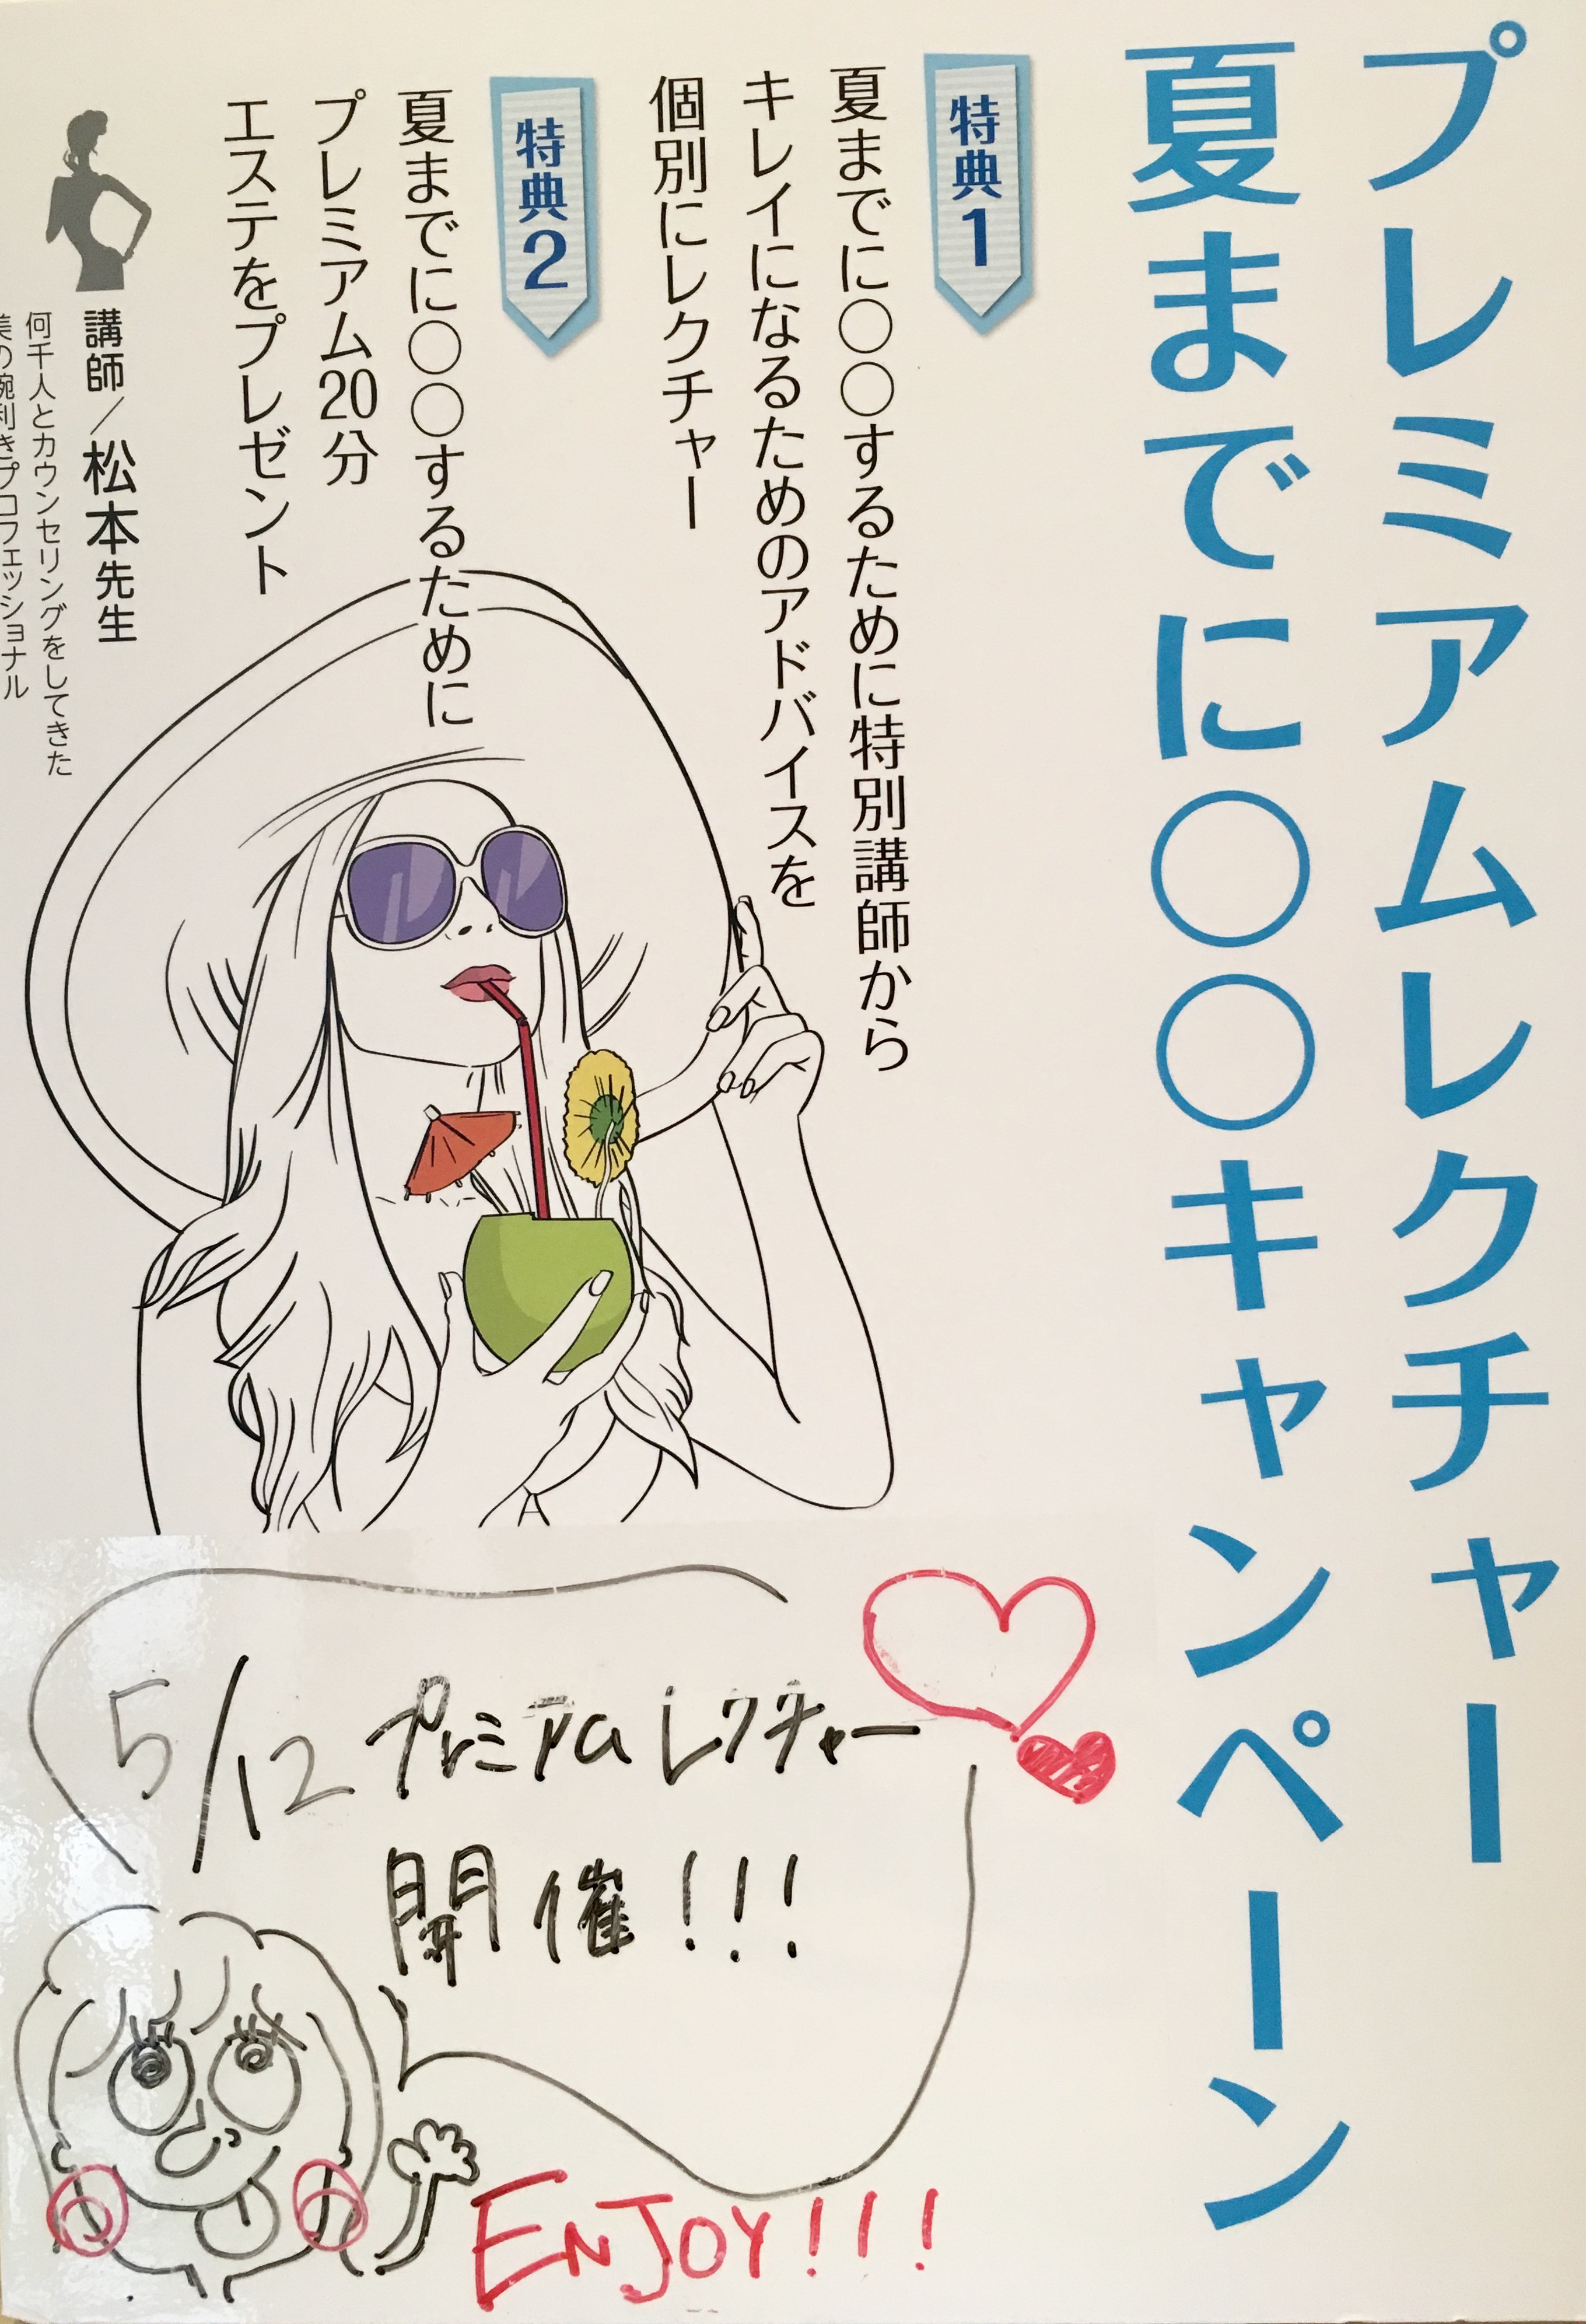 プレミアムレクチャー
夏までに〇〇キャンペーン
特典1
夏までに〇〇するために特別講師から
キレイになるためのアドバイスを
個別にレクチャー
特典2
夏までに〇〇するために
プレミアム20分
エステをプレゼント
講師／松本先生
何千人とカウンセリングをしてきた
美の腕利きプロフェッショナル
5/12 プレミアムレクチャー
開催!!!
ENJOY!!!